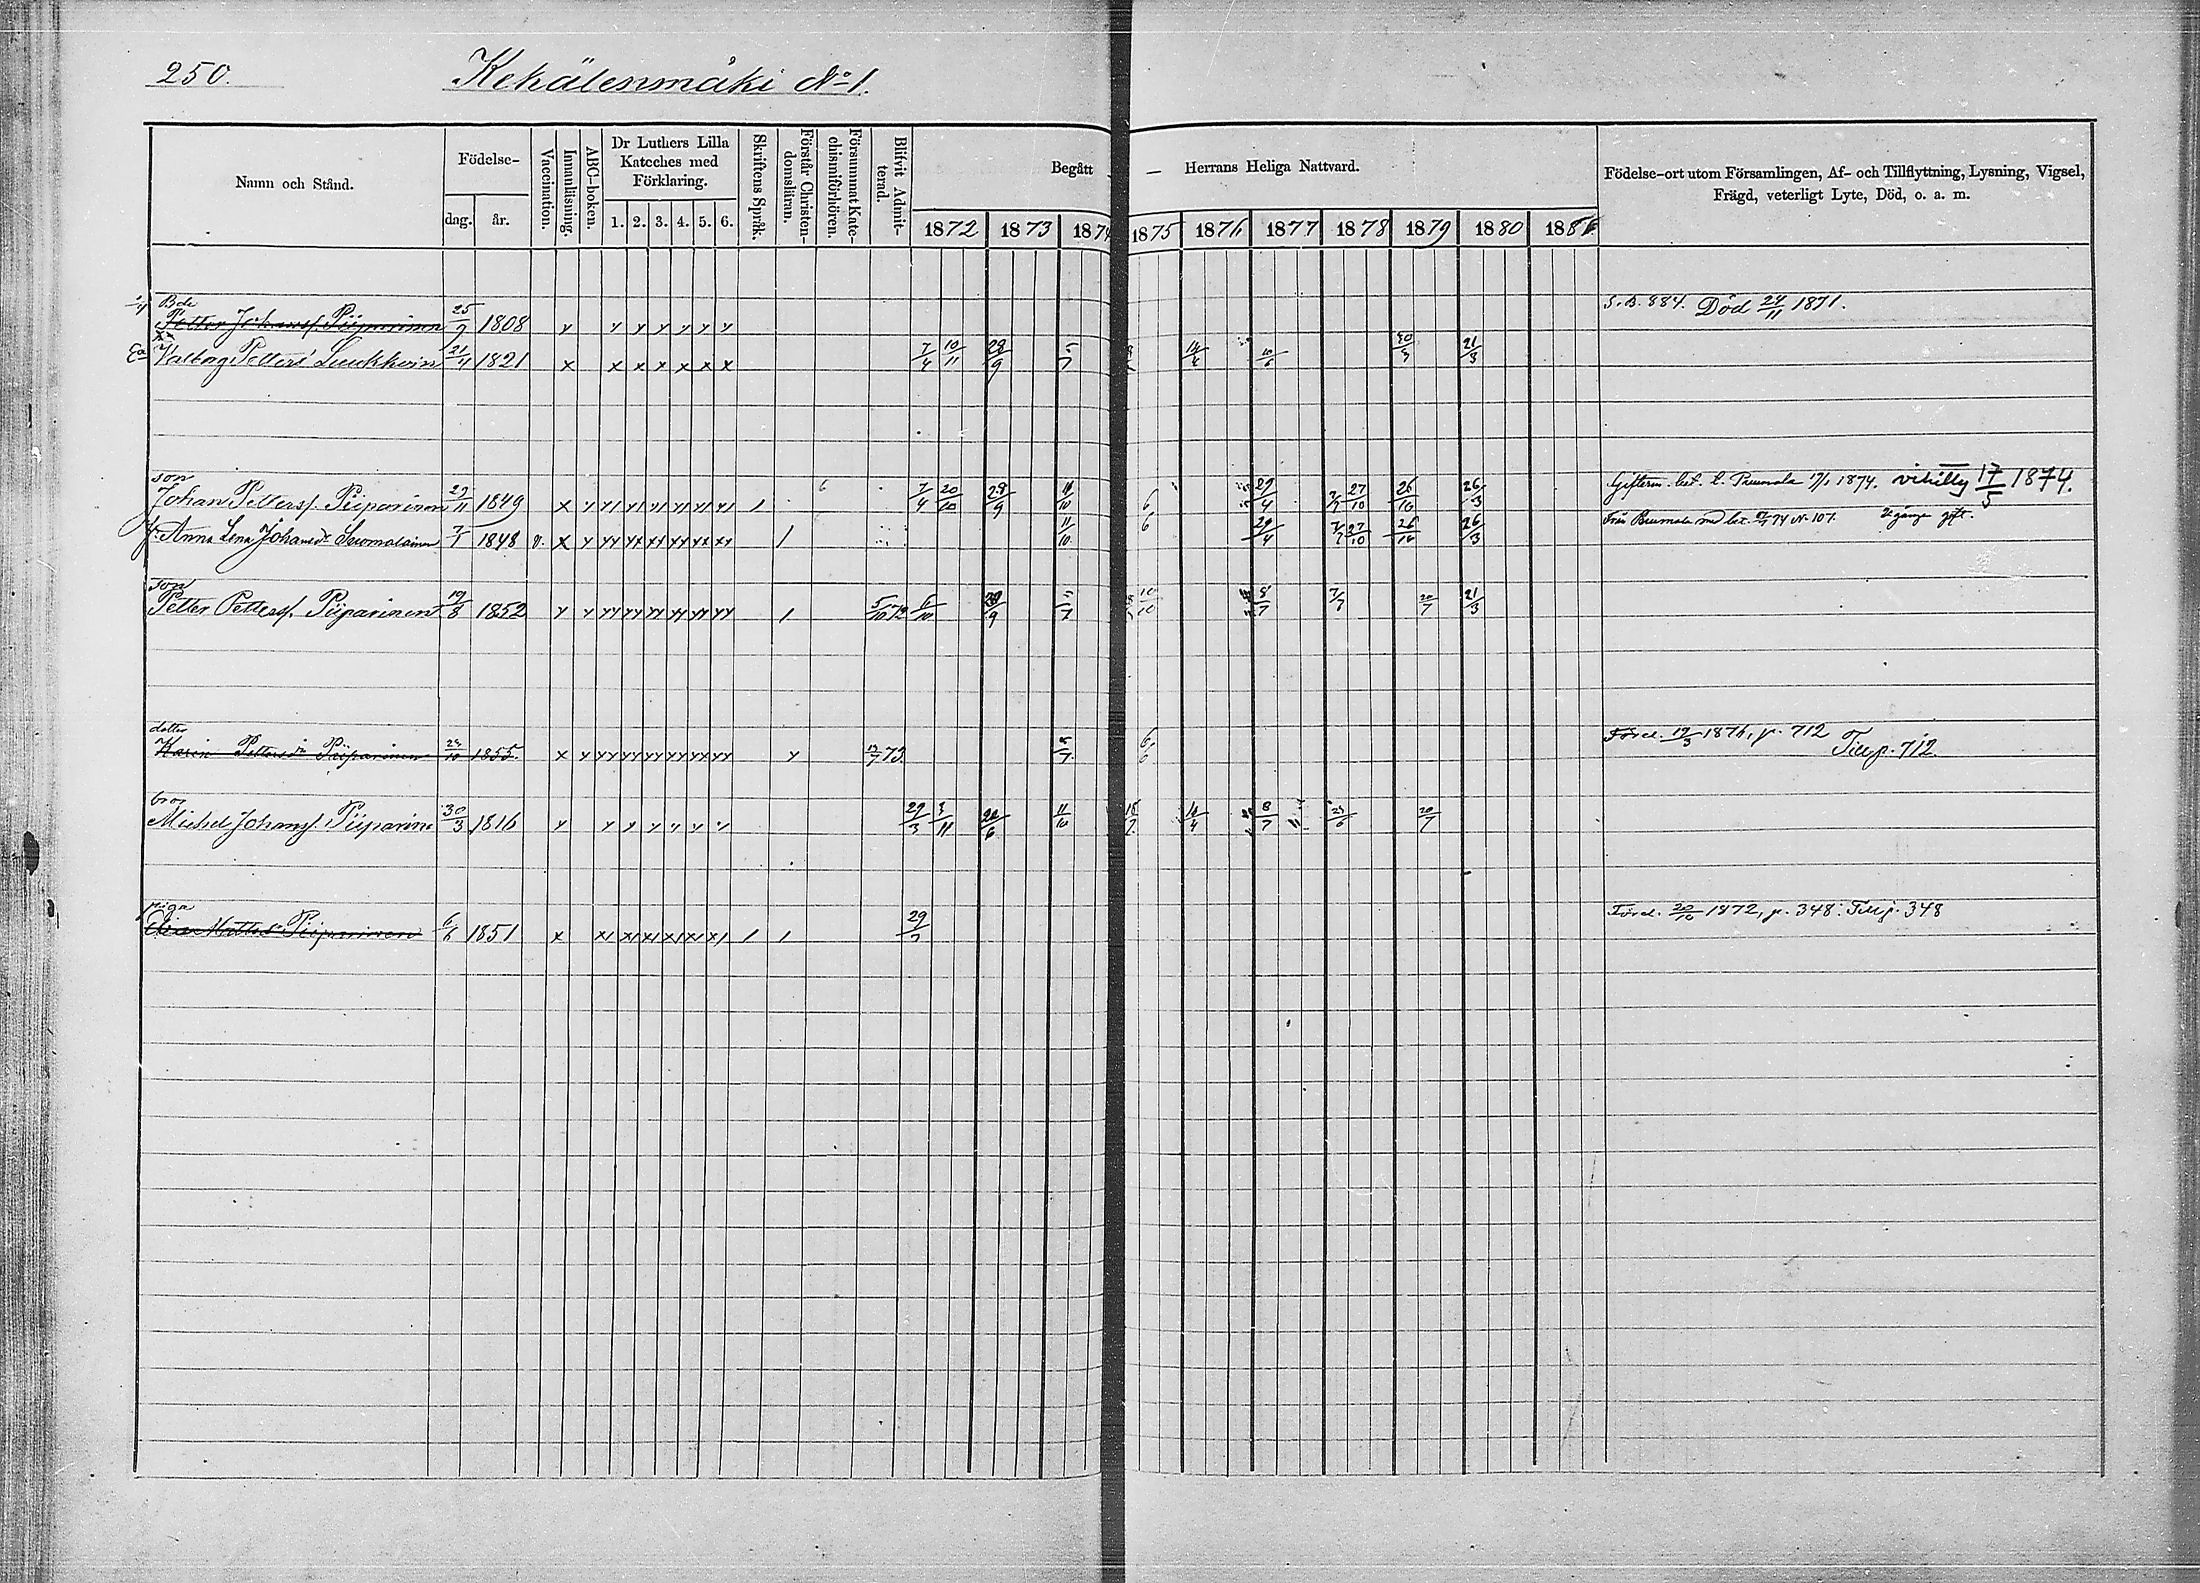 250.
Kekälenmäki No 1.
Namn och Stånd.
Födelse-
dag.
år.
Vaccination.
Innanläsning.
ABC-boken.
Dr Luthers Lilla
Kateches med
Förklaring.
1. 2. 3. 4. 5. 6.
Skriftens Språk.
Förstår Christen-
domsläran.
Försummat Kate-
chismiförhören.
Blifvit Admit-
terad.
Begått — Herrans Heliga Nattvard.
1872 1873 1874 1875 1876 1877 1878 1879 1880 1881
Födelse-ort utom Församlingen, Af- och Tillflyttning, Lysning, Vigsel,
Frägd, veterligt Lyte, Död, o. a. m.
Bde
Petter Johanss. Piiparinen 25/9 1808 S.B. 884. Död 24/11 1871.
Valborg Petters Luukkoin 21/4 1821 7/4 10/11 28/9 5/7 14/4 10/6 21/3
son
Johan Petterss. Piiparinen 29/11 1849 7/4 20/10 28/9 11/10 6 29/4 7/7 27/10 26/10 26/3 1874. vihitty 17/5 1874.
Anna Lena Johansdr Suomalainen 7/1 1848 v. 11/10 6 29/4 7/7 27/10 26/10 26/3 No 107. gift.
son
Petter Petterss. Piiparinen 19/8 1852 5/10 72 6/10 5/7 10/10 8/7 7/7 20/7 21/3
dotter
Karin Pettersdr Piiparinen 24/10 1855 73. 5/7 6/6 Förd. 19/3 1876, p. 712 Till p. 712.
bror
Michel Johanss. Piiparine 30/3 1816 29/3 3/11 11/10 18/7 16/4 8/7 24/6 20/7
piga
Matts Piiparinen 6/6 1851 29/7 Förd. 20/10 1872, p. 348. Till p. 348